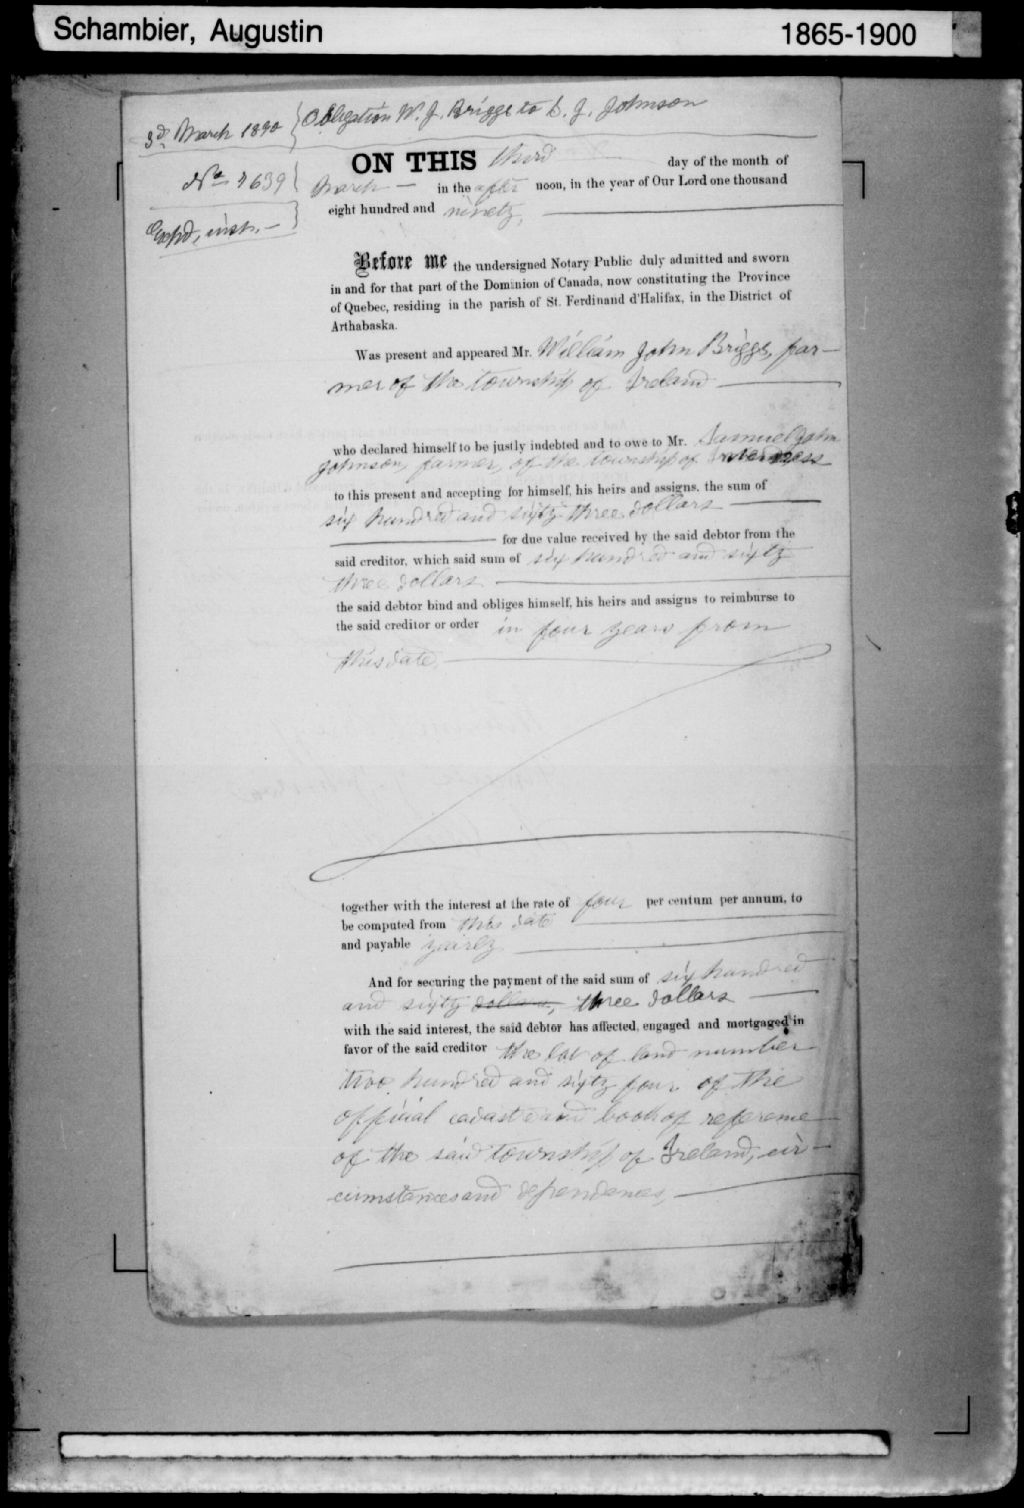 Schambier, Augustin 1865-1900
3d March 1890 Obligation W. J. Briggs to S. J. Johnson
No 7639
inst.
ON THIS third day of the month of
March in the after noon, in the year of Our Lord one thousand
eight hundred and ninety,
Before me the undersigned Notary Public duly admitted and sworn
in and for that part of the Dominion of Canada, now constituting the Province
of Quebec, residing in the parish of St. Ferdinand d'Halifax, in the District of
Arthabaska.
Was present and appeared Mr. William John Briggs, far-
mer of the township of Ireland
who declared himself to be justly indebted and to owe to Mr. Samuel John
Johnson, farmer, of the township of Inverness
to this present and accepting for himself, his heirs and assigns, the sum of
six hundred and sixty three dollars
for due value received by the said debtor from the
said creditor, which said sum of six hundred and sixty
three dollars
the said debtor bind and obliges himself, his heirs and assigns to reimburse to
the said creditor or order in four years from
this date.
together with the interest at the rate of four per centum per annum, to
be computed from this date
and payable yairly
And for securing the payment of the said sum of six hundred
and sixty dollars, three dollars
with the said interest, the said debtor has affected, engaged and mortgaged in
favor of the said creditor the lot of land number
two hundred and sixty four of the
official cadastre and book of reference
of the said township of Ireland, cir-
cumstances and dependences,